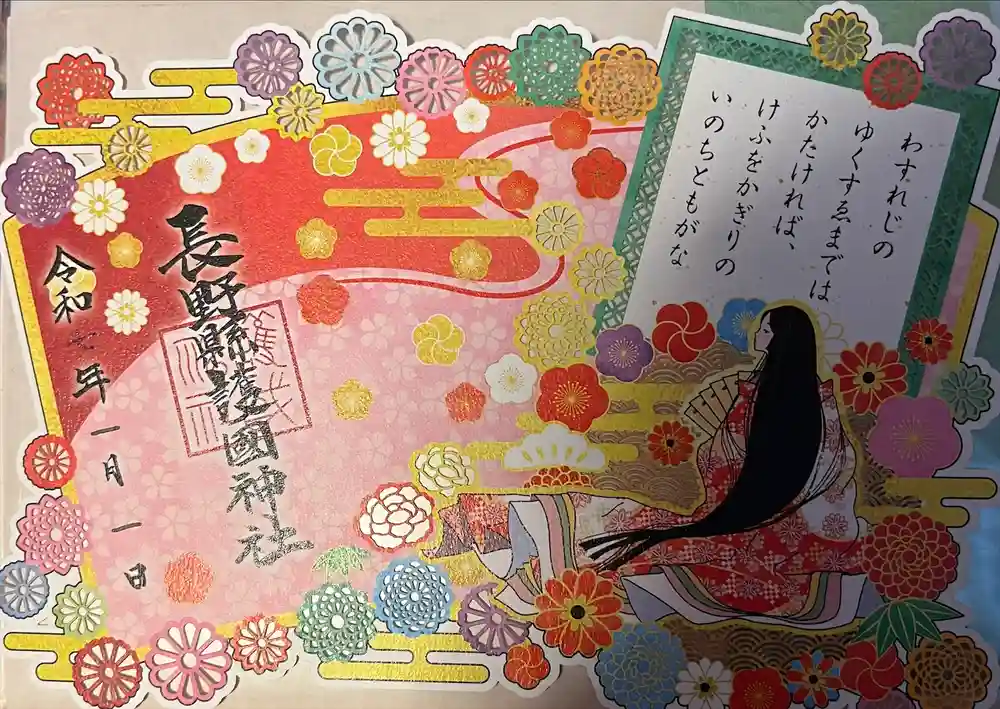 わすれじの
ゆくすゑまでは
かたければ、
けふをかぎりの
いのちともがな
長野縣護國神社
令和七年一月一日